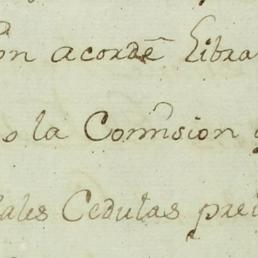 on acorde Libra
o la Comision
ales Cedulas prei